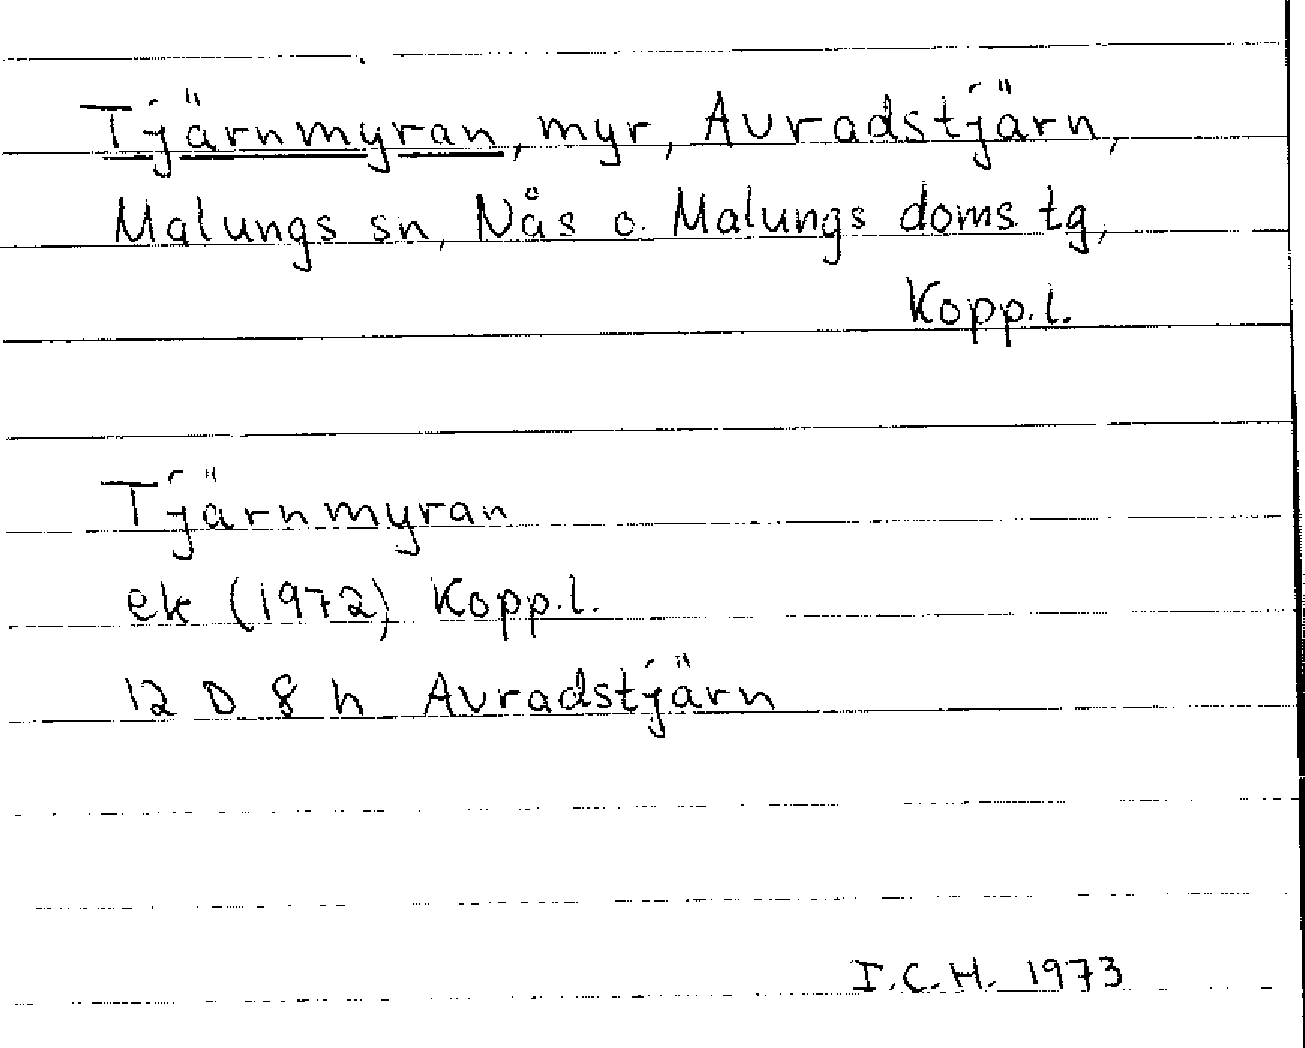 Tjärnmyran, myr, Avradstjärn,
Malungs sn, Nås o. Malungs doms. tg,
Kopp.l.
Tjärnmyran
ek (1972) Kopp.l.
12 D 8 h Avradstjärn
I.C.H. 1973